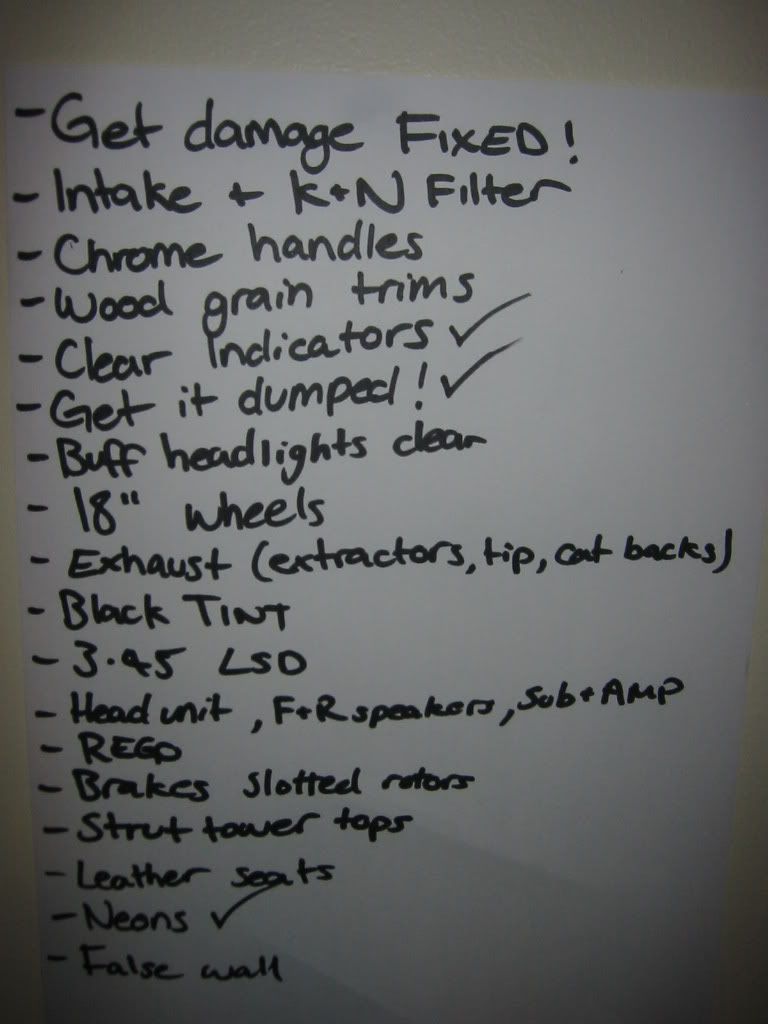 - Get damage FIXED!
- Intake + K+N Filter
- Chrome handles
- Wood grain trims
- Clear Indicators ✓
- Get it dumped! ✓
- Buff headlights clear
- 18" wheels
- Exhaust (extractors, tip, cat backs)
- Black TINT
- 3.45 LSD
- Head unit, F+R speakers, Sub+AMP
- REGO
- Brakes slotted rotors
- Strut tower tops
- Leather seats
- Neons ✓
- False wall